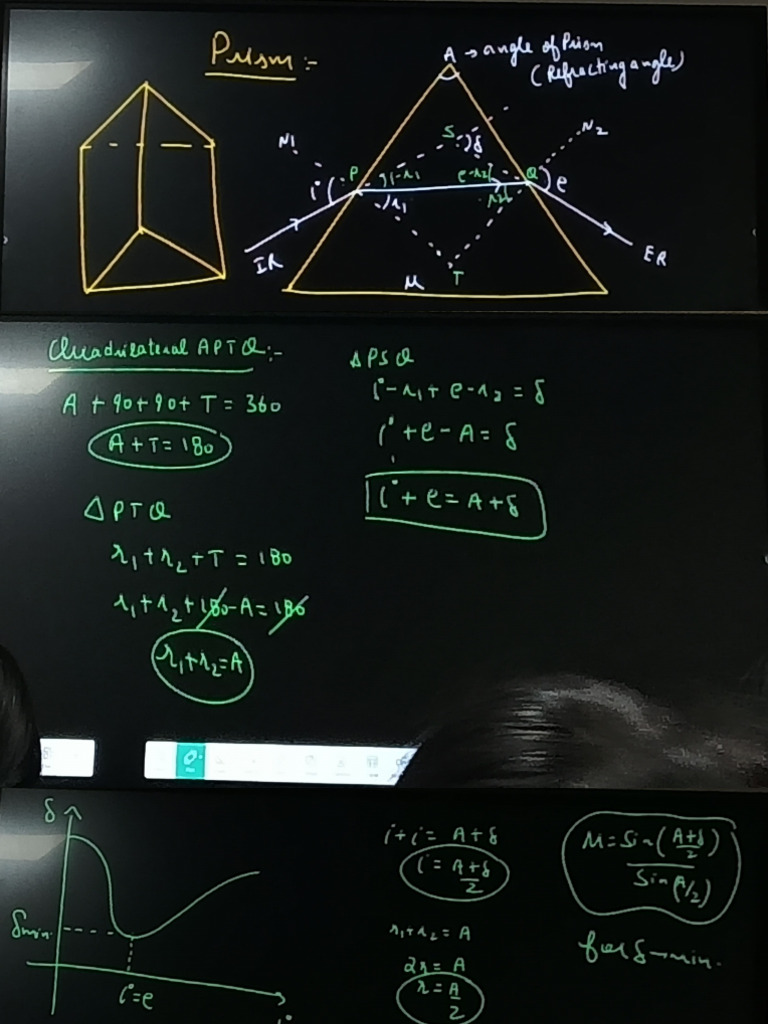 Prism :-
A → angle of Prism
(Refracting angle)
N1
N2
S
δ
P
i-r₁
e-r₂
Q
i
r₁
r₂
e
IR
ER
μ
T
Quadrilateral APTQ :-
A + 90 + 90 + T = 360
A + T = 180
Δ PTQ
r₁ + r₂ + T = 180
r₁ + r₂ + 180 - A = 180
r₁ + r₂ = A
Δ PSQ
i - r₁ + e - r₂ = δ
i + e - A = δ
i + e = A + δ
δ
δmin.
i = e
i
i + i = A + δ
i = A + δ / 2
r₁ + r₂ = A
2r = A
r = A / 2
μ = Sin(A+δ / 2) / Sin(A/2)
for δ → min.